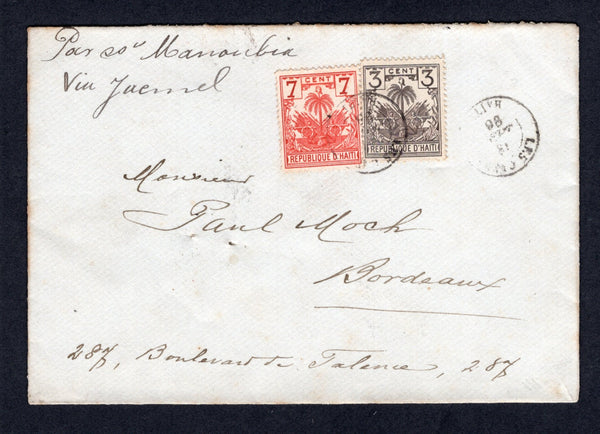 Par ss. Manoubia
Via Jacmel
7 CENT 7
REPUBLIQUE D'HAITI
3 CENT 3
REPUBLIQUE D'HAITI
LES CAYES
HAITI
98
Monsieur
Paul Moch
Bordeaux
287, Boulevard de Talence, 287